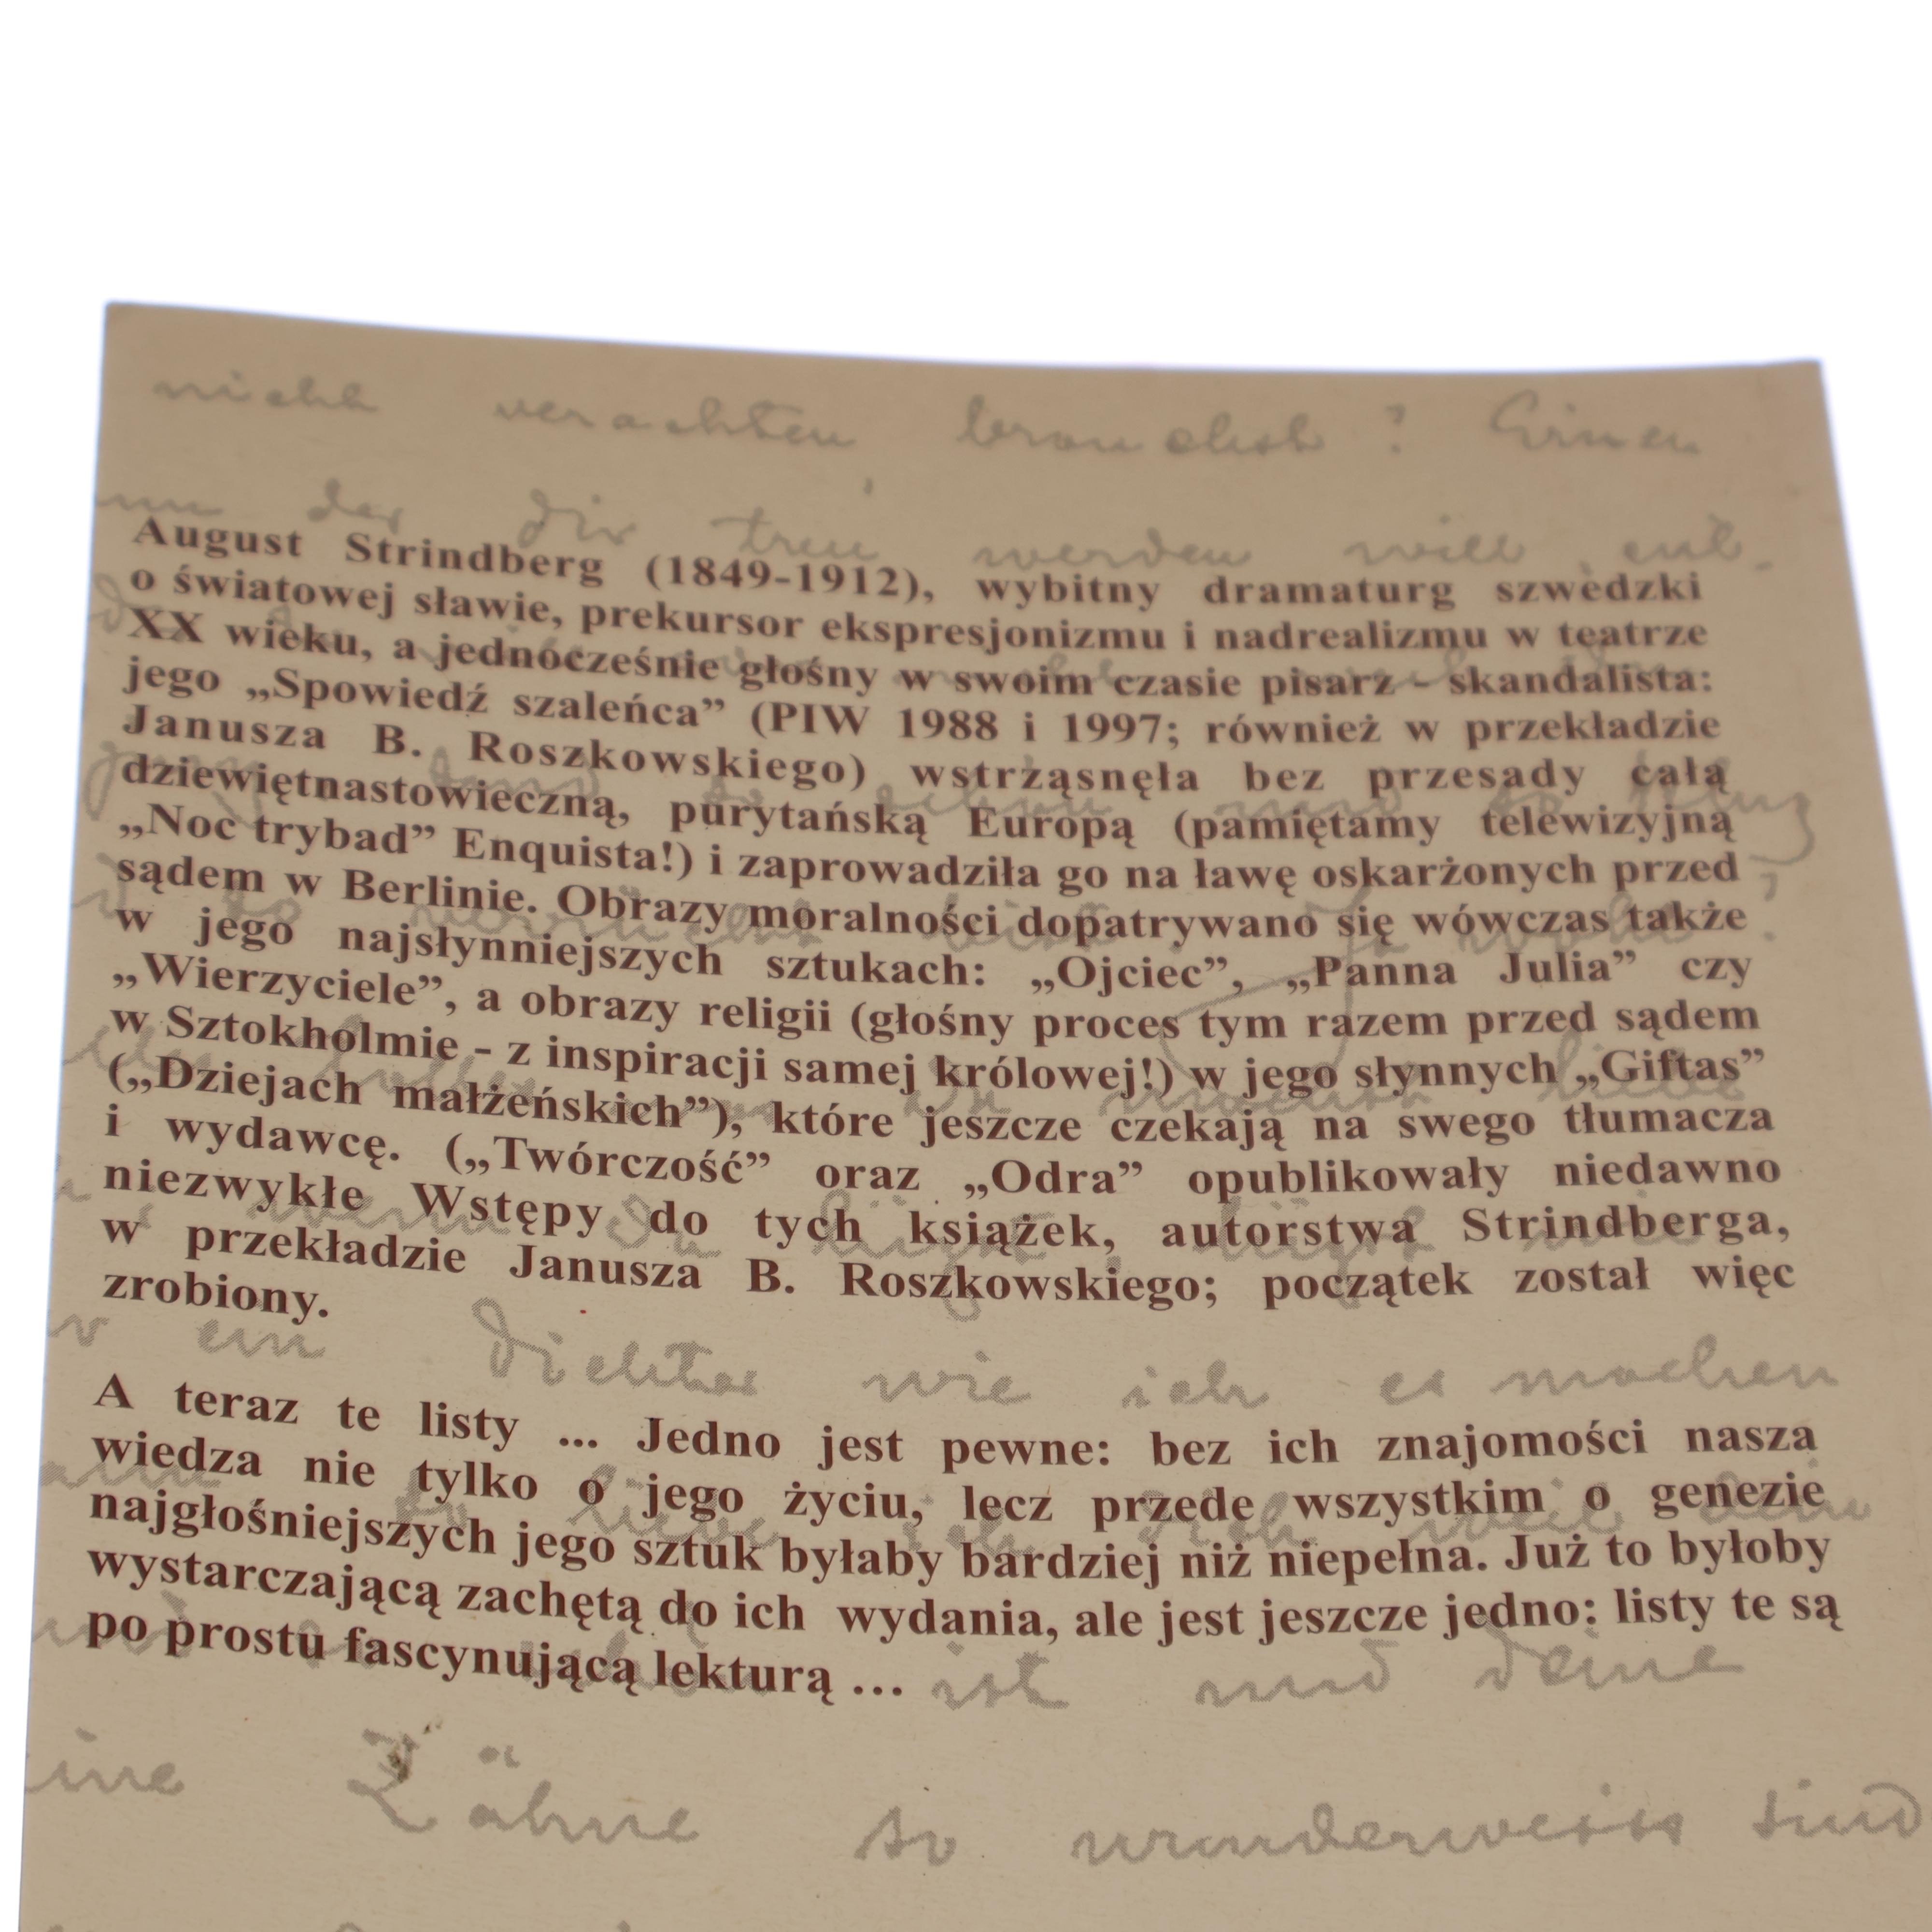 nicht verachten brauchst? Einen
der dir treu werden will
August Strindberg (1849-1912), wybitny dramaturg szwedzki
o światowej sławie, prekursor ekspresjonizmu i nadrealizmu w teatrze
XX wieku, a jednocześnie głośny w swoim czasie pisarz - skandalista:
jego „Spowiedź szaleńca” (PIW 1988 i 1997; również w przekładzie
Janusza B. Roszkowskiego) wstrząsnęła bez przesady całą
dziewiętnastowieczną, purytańską Europą (pamiętamy telewizyjną
„Noc trybad” Enquista!) i zaprowadziła go na ławę oskarżonych przed
sądem w Berlinie. Obrazy moralności dopatrywano się wówczas także
w jego najsłynniejszych sztukach: „Ojciec”, „Panna Julia” czy
„Wierzyciele”, a obrazy religii (głośny proces tym razem przed sądem
w Sztokholmie - z inspiracji samej królowej!) w jego słynnych „Giftas”
(„Dziejach małżeńskich”), które jeszcze czekają na swego tłumacza
i wydawcę. („Twórczość” oraz „Odra” opublikowały niedawno
niezwykłe Wstępy do tych książek, autorstwa Strindberga,
w przekładzie Janusza B. Roszkowskiego; początek został więc
zrobiony.
ein Dichter wie ich es machen
A teraz te listy ... Jedno jest pewne: bez ich znajomości nasza
wiedza nie tylko o jego życiu, lecz przede wszystkim o genezie
najgłośniejszych jego sztuk byłaby bardziej niż niepełna. Już to byłoby
wystarczającą zachętą do ich wydania, ale jest jeszcze jedno: listy te są
po prostu fascynującą lekturą ...
ist und deine
Zähne so wunderweiss sind